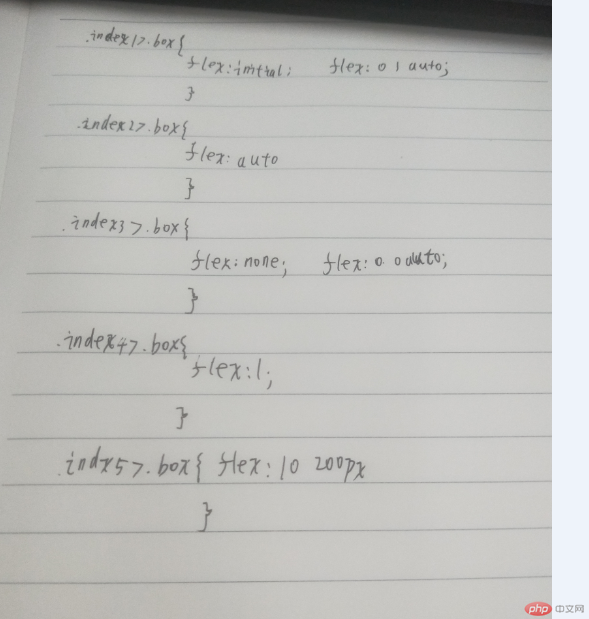 .index1>.box{
flex:initial; flex: 0 1 auto;
}
.index2>.box{
flex: auto
}
.index3>.box{
flex:none; flex:0 0 auto;
}
.index4>.box{
flex:1;
}
.indx5>.box{ flex:10 200px
}
php 中文网